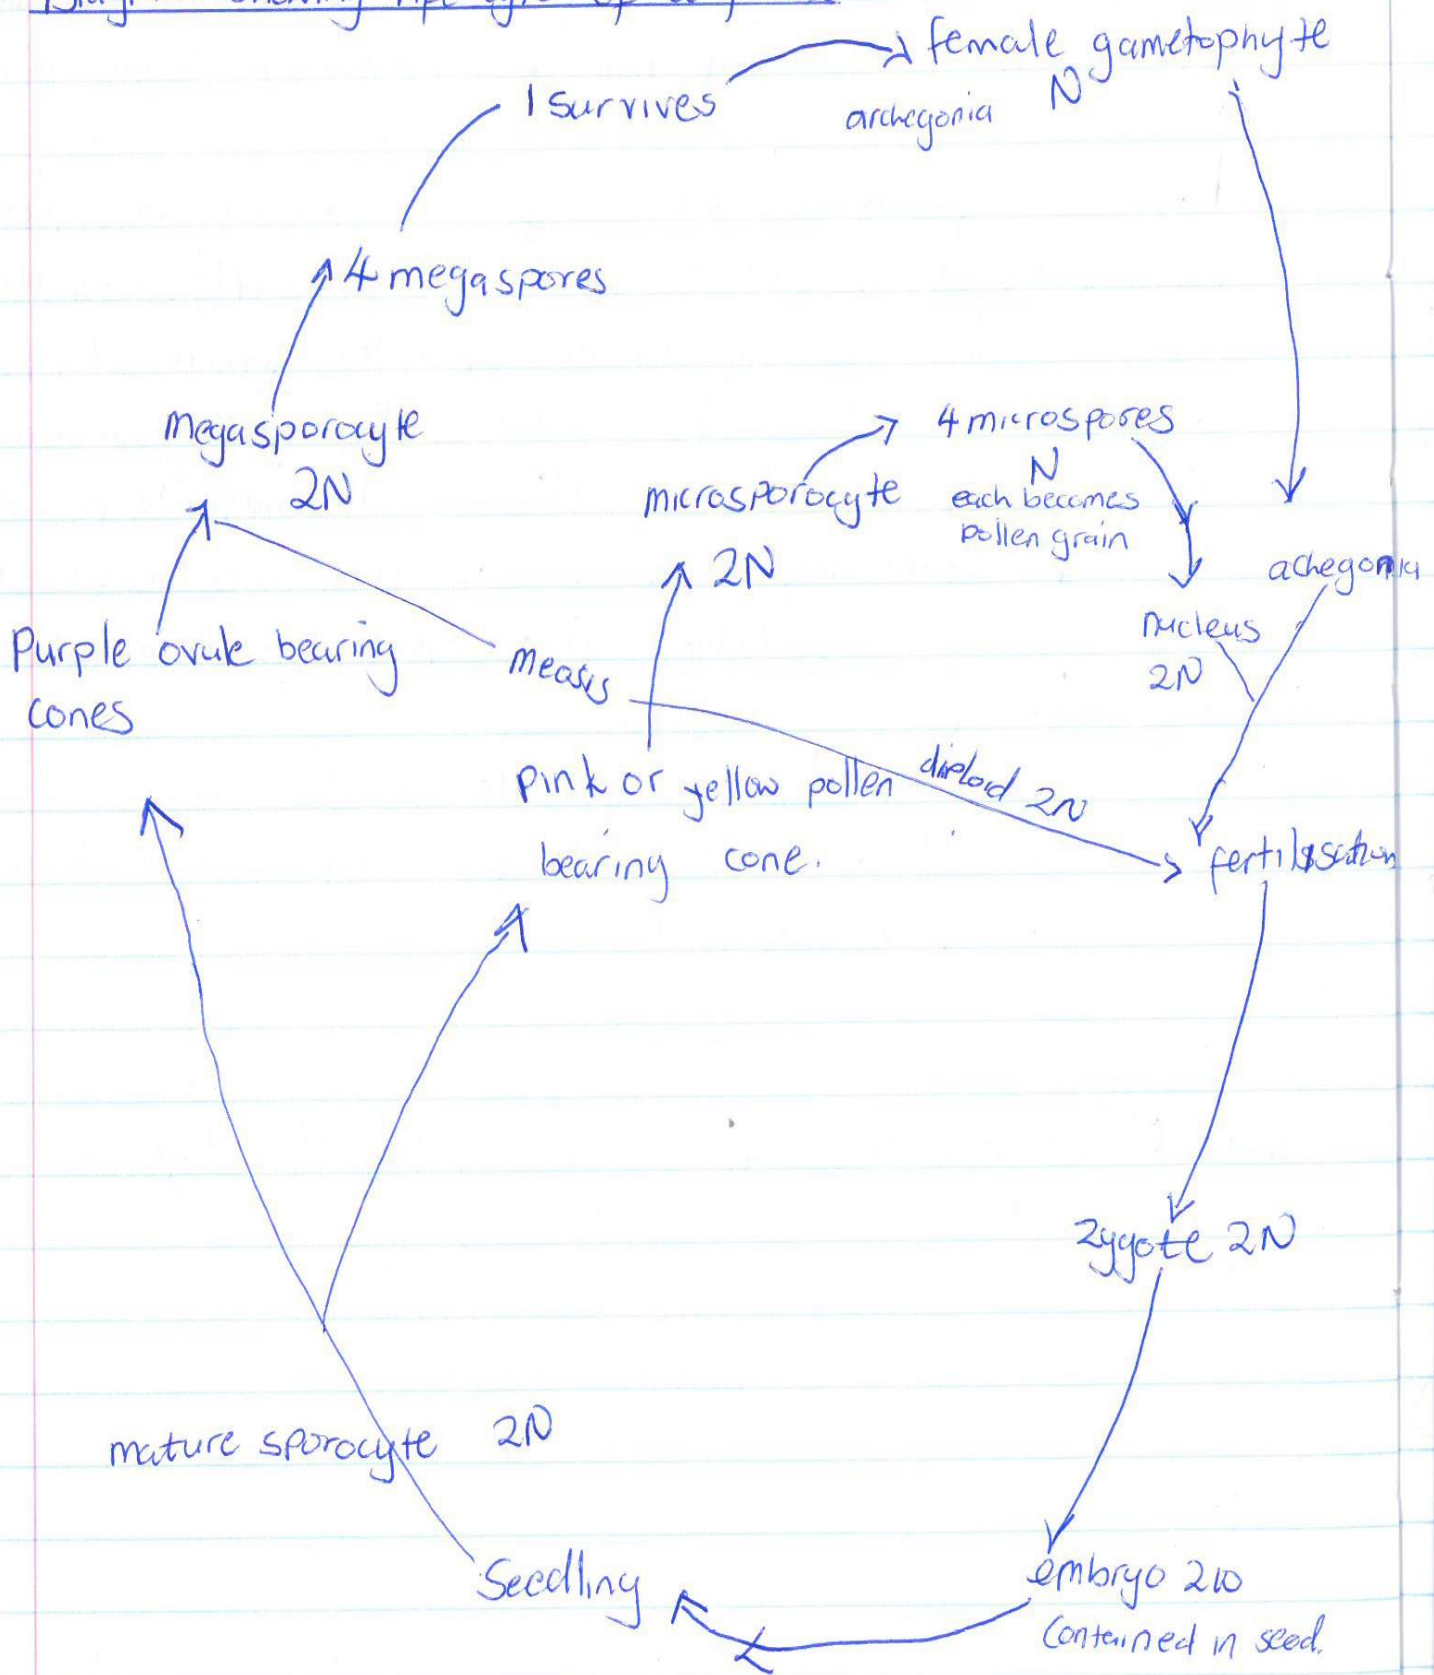 female gametophyte
N
1 survives
archegonia
4 megaspores
megasporocyte
2N
4 microspores
N
each becomes
pollen grain
microsporocyte
2N
achegonia
nucleus
2N
Purple ovule bearing
cones
pink or yellow pollen
bearing cone.
diploid 2N
zygote 2N
mature sporocyte 2N
Seedling
embryo
contained in seed.